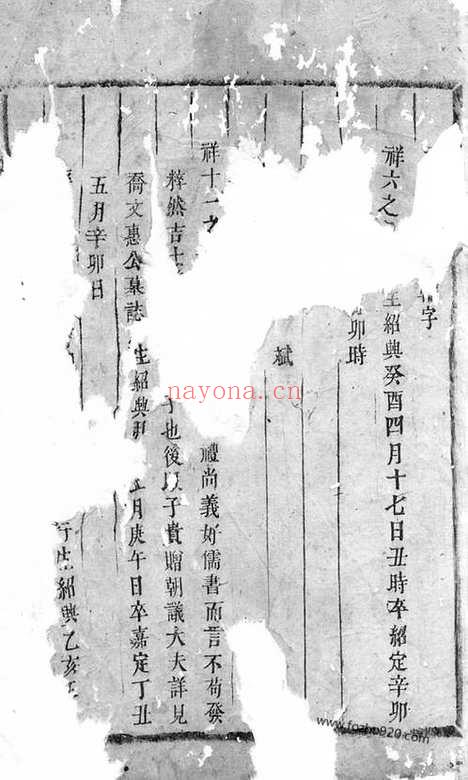 字
祥六之
生紹興癸酉四月十七日丑時卒紹定辛卯
卯時
斌
祥十一之
禮尚義好儒書而言不苟發
粹然吉士
子也後以子貴贈朝議大夫詳見
喬文惠公墓誌
生紹興
五月庚午日卒嘉定丁丑
五月辛卯日
行
生紹興乙亥
nayona.cn
www.fozhu920.com